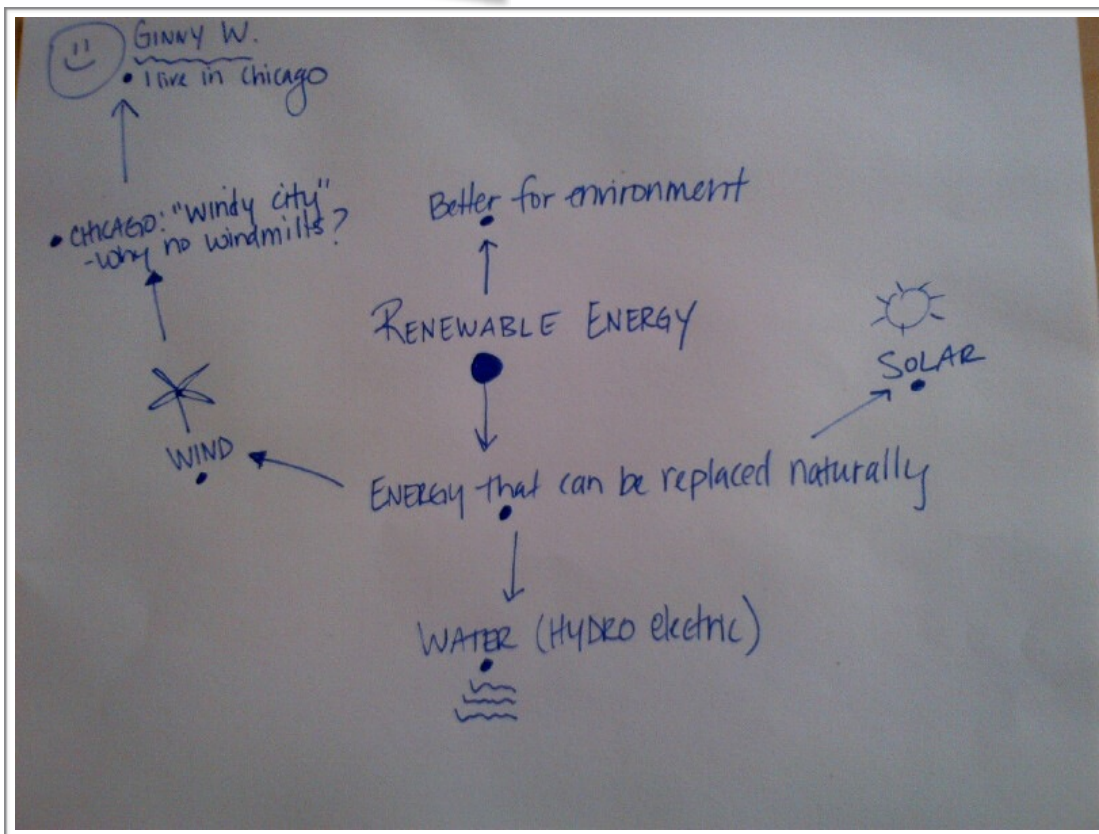 GINNY W.
• I live in Chicago
• CHICAGO: "Windy city"
- why no windmills?
Better for environment
RENEWABLE ENERGY
SOLAR
WIND
ENERGY that can be replaced naturally
WATER (HYDRO electric)